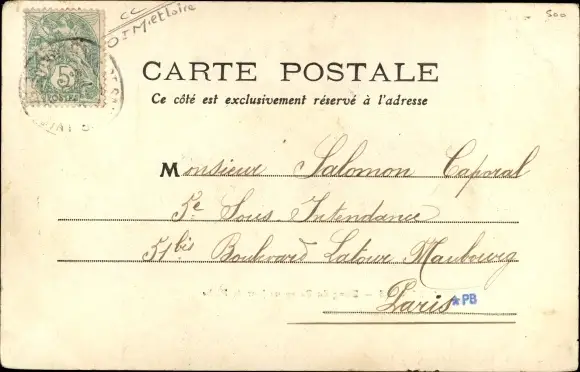 CC
et Loire
500
5c
CARTE POSTALE
Ce côté est exclusivement réservé à l'adresse
Monsieur Salomon Caporal
5e Sous Intendance
51bis Boulevard Latour Maubourg
Paris
*PB